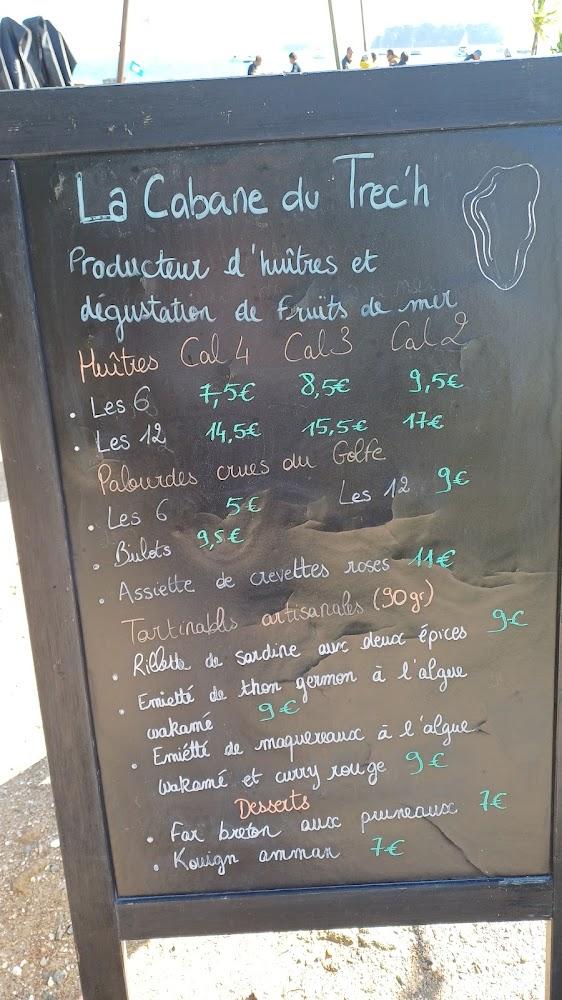 La Cabane du Trec'h
Producteur d'huîtres et
dégustation de fruits de mer
Huîtres Cal 4 Cal 3 Cal 2
. Les 6 7,5€ 8,5€ 9,5€
. Les 12 14,5€ 15,5€ 17€
Palourdes crues du Golfe
. Les 6 5€ Les 12 9€
. Bulots 9,5€
. Assiette de crevettes roses 11€
Tartinables artisanales (90gr)
. Rillette de sardine aux deux épices 9€
. Emietté de thon germon à l'algue
wakamé 9€
. Emiétté de maquereaux à l'algue
wakamé et curry rouge 9€
Desserts
. Far breton aux pruneaux 7€
. Kouign amman 7€